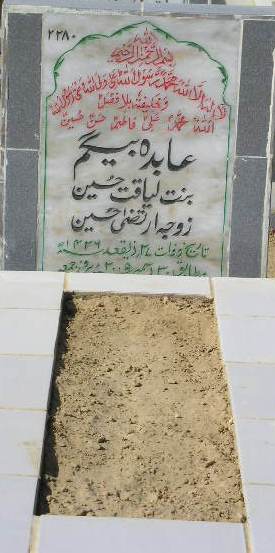 ۲۲۸۰
بسم اللہ الرحمن الرحیم
لا الہ الا اللہ محمد رسول اللہ علی ولی اللہ وصی رسول اللہ
و خلیفتہ بلا فصل
اللہ محمدؐ علیؑ فاطمہؑ حسنؑ حسینؑ
عابدہ بیگم
بنت لیاقت حسین
زوجہ ارتضیٰ حسین
تاریخ وفات ۲۷ ذیقعد ۱۴۳۶ھ
مطابق